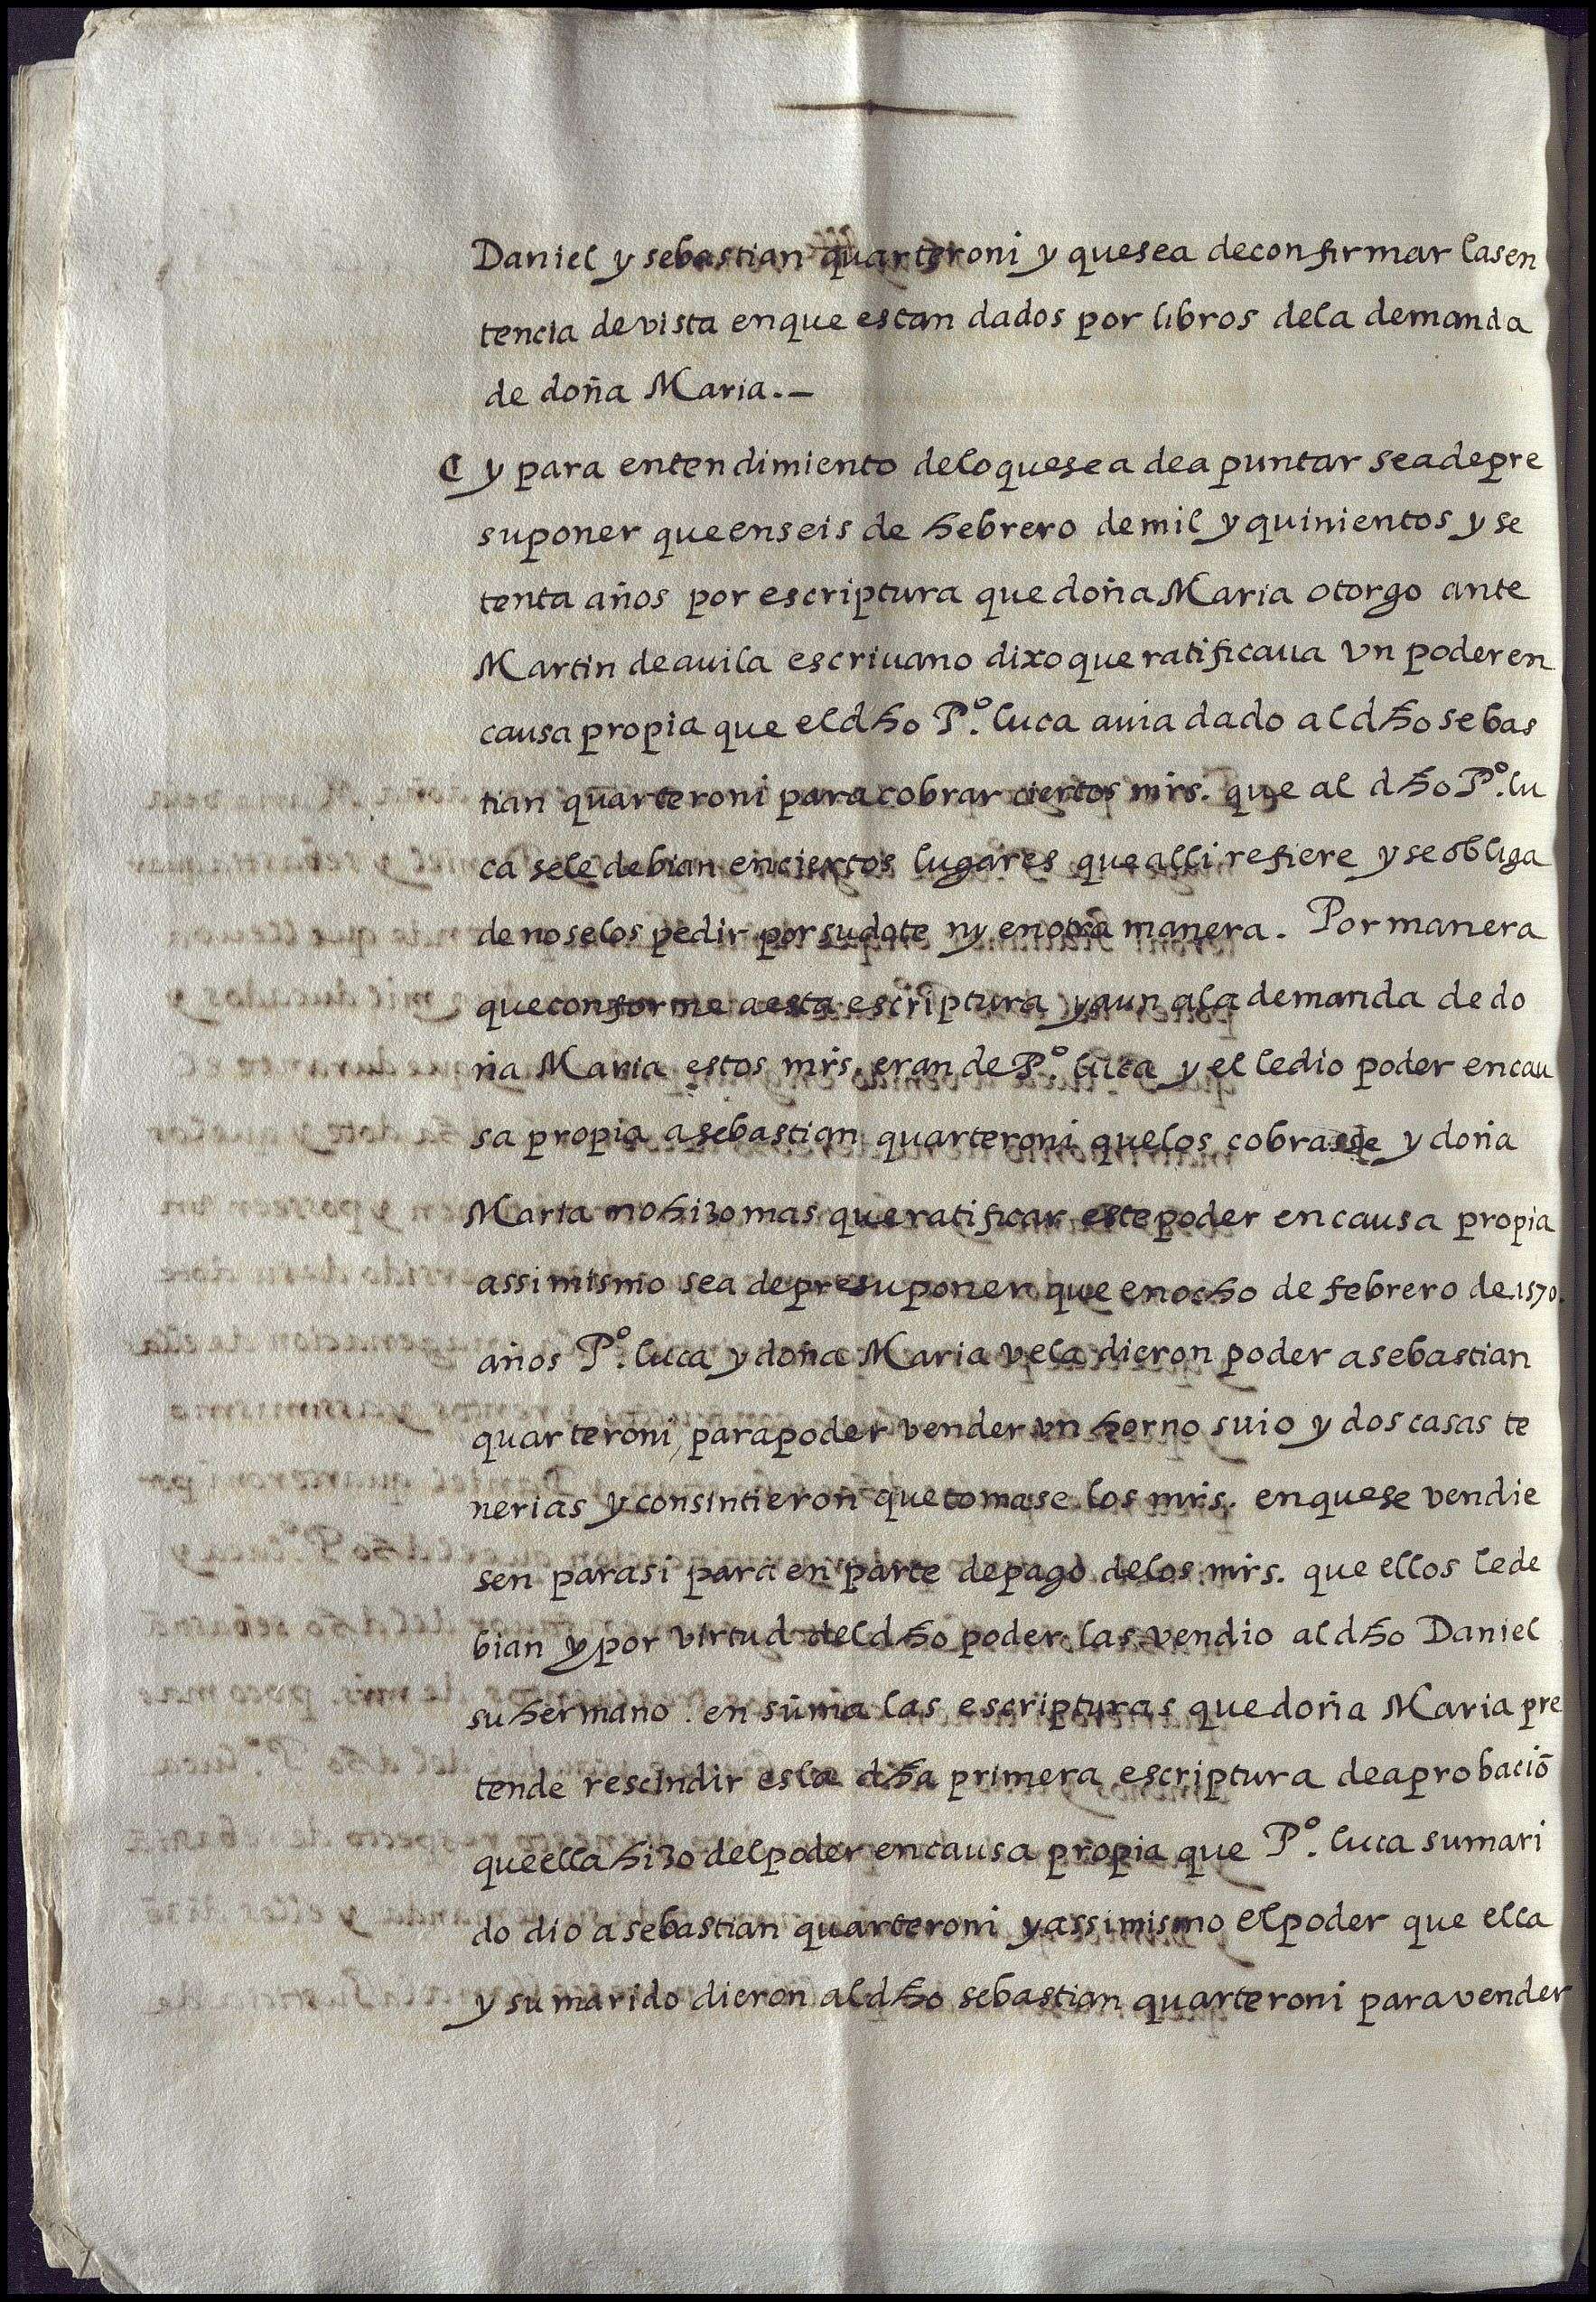 Daniel y sebastian quarteroni y quesea deconfirmar lasen
tencia devista enque estan dados por libros dela demanda
de doña Maria.—
C y para entendimiento deloquesea deapuntar seadepre
suponer queenseis de hebrero demil y quinientos y se
tenta años por escriptura quedoña Maria otorgo ante
Martin deauila escriuano dixoque ratificaua vn poderen
causa propia que eldho Pº. luca auia dado aldho sebas
tian quarteroni para cobrar ciertos mrs. que al dho Pº. lu
ca sele debian enciertos lugares quealli refiere y seobliga
denoselos pedir por sudote ny enotra manera. Por manera
queconforme aesta escriptura y aun ala demanda dedo
ña Maria estos mrs. eran de Pº. luca y el ledio poder encau
sa propia asebastian quarteroni quelos cobrasse y doña
Maria nohizomas queratificar estepoder encausa propia
assimismo sea depresuponer que enocho de febrero de.1570.
años Pº. luca y doña Maria vela dieron poder asebastian
quarteroni, parapoder vender vn horno suio y doscasas te
nerias y consintieron quetomase los mrs. enquese vendie
sen parasi para en parte depago delos mrs. que ellos lede
bian y por virtud deldho poder las vendio aldho Daniel
su hermano. en suma las escripturas quedoña Maria pre
tende rescindir esla dha primera escriptura deaprobaciō
queella hizo delpoder encausa propia que Pº. luca sumari
do dio asebastian quarteroni y assimismo elpoder que ella
y sumarido dieron aldho sebastian quarteroni paravender